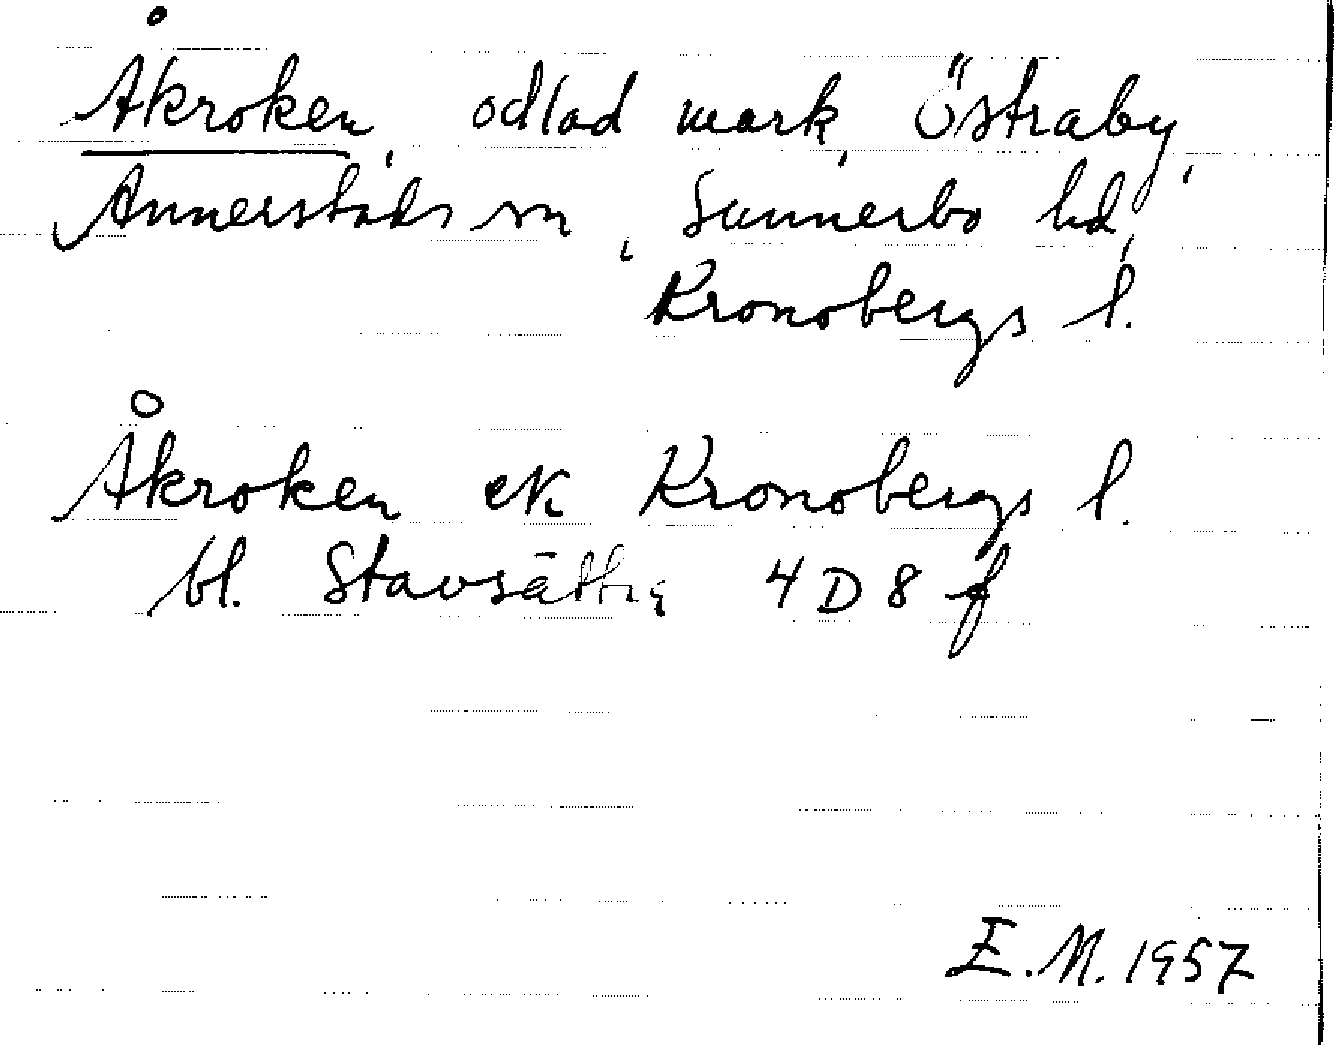 Åkroken, odlad mark, Östraby,
Annerstads sn, Sunnerbo hd,
Kronobergs l.
Åkroken ek Kronobergs l.
bl. Stavsätter 4 D 8 f
E.N. 1957